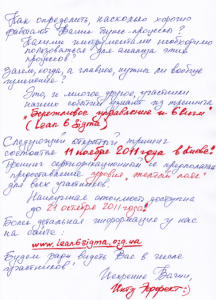 Как определить, насколько хорошо
работают Ваши бизнес-процессы?
Какими инструментами необходимо
пользоваться для анализа этих
процессов?
Зачем, когда, а главное, нужны ли вообще
изменения?
Это и многое другое, участники
наших событий узнают из тренинга
"Бережливое управление и 6 Сигм"
(Lean 6 Sigma)
Следующий открытый тренинг
состоится 11 ноября 2011 года в Киеве!
Тренинг сертификационный и предполагает
уровня "желтый пояс"
для всех участников.
стоимость доступна
до 29 октября 2011 года!
Более детальная информация у нас
на сайте:
www.lean6sigma.org.ua
Будем рады видеть Вас в числе
участников!
Искренне Ваши,